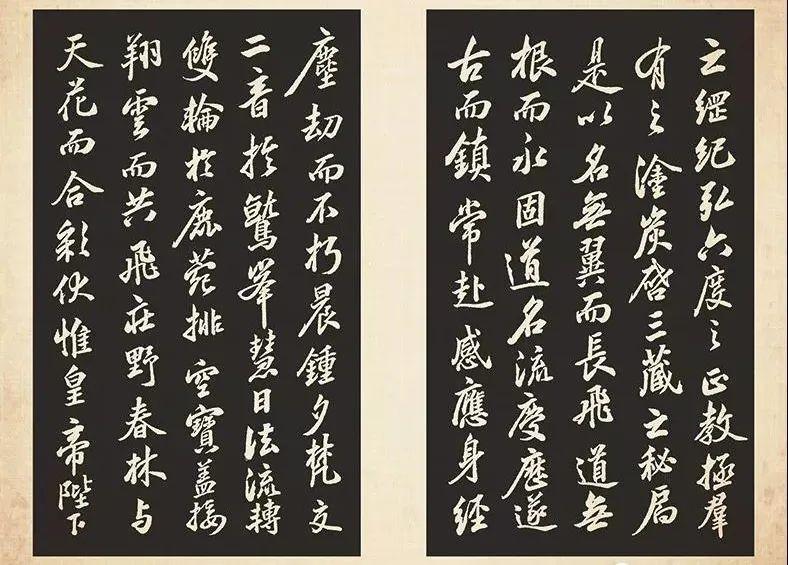 之綱紀弘六度之正教拯羣
有之塗炭啓三藏之秘扃
是以名無翼而長飛道無
根而永固道名流慶歷遂
古而鎮常赴感應身經
塵劫而不朽晨鍾夕梵交
二音於鷲峯慧日法流轉
雙輪於鹿菀排空寶蓋接
翔雲而共飛莊野春林与
天花而合彩伏惟皇帝陛下